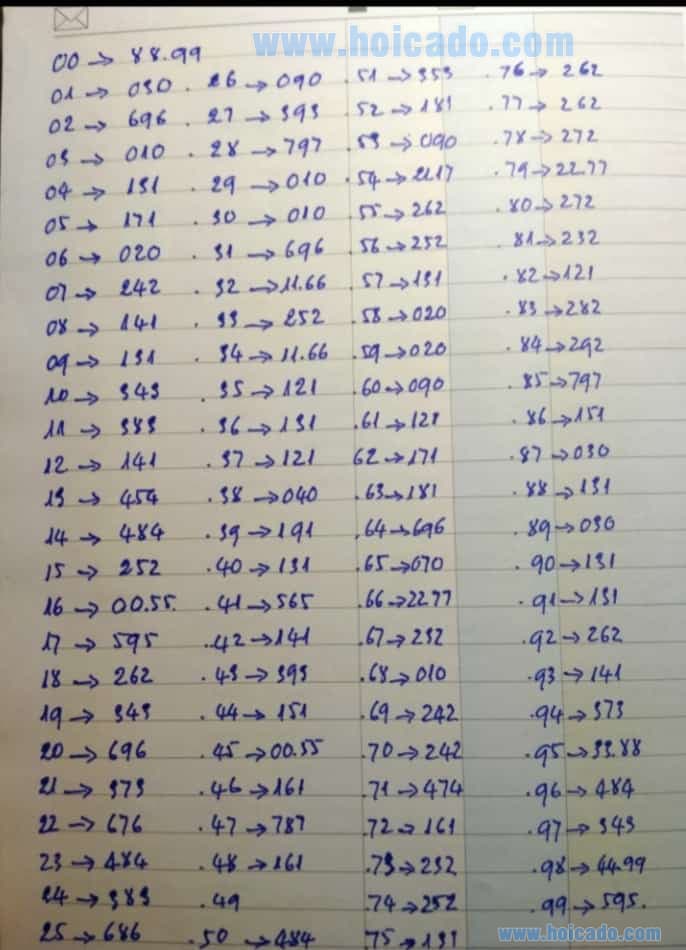 www.hoicado.com
00 → 88.99
01 → 030 . 26 → 090 .51 → 353 .76 → 262
02 → 696 . 27 → 393 .52 → 181 .77 → 262
03 → 010 . 28 → 797 .53 → 090 .78 → 272
04 → 131 . 29 → 010 .54 → 22.17 .79 → 22.77
05 → 171 . 30 → 010 .55 → 262 .80 → 272
06 → 020 . 31 → 696 .56 → 252 .81 → 232
07 → 242 . 32 → 11.66 .57 → 131 .82 → 121
08 → 141 . 33 → 252 .58 → 020 .83 → 282
09 → 131 . 34 → 11.66 .59 → 020 .84 → 292
10 → 343 . 35 → 121 .60 → 090 .85 → 797
11 → 383 . 36 → 131 .61 → 121 .86 → 151
12 → 141 . 37 → 121 62 → 171 .87 → 030
13 → 454 .38 → 040 .63 → 181 .88 → 131
14 → 484 .39 → 191 .64 → 696 .89 → 030
15 → 252 .40 → 131 .65 → 070 .90 → 131
16 → 00.55. .41 → 565 .66 → 22.77 .91 → 131
17 → 595 .42 → 141 .67 → 232 .92 → 262
18 → 262 .43 → 393 .68 → 010 .93 → 141
19 → 343 .44 → 151 .69 → 242 .94 → 373
20 → 696 .45 → 00.55 .70 → 242 .95 → 33.88
21 → 373 .46 → 161 .71 → 474 .96 → 484
22 → 676 .47 → 787 .72 → 161 .97 → 343
23 → 484 .48 → 161 .73 → 232 .98 → 44.99
24 → 383 .49 .74 → 252 .99 → 595.
25 → 686 .50 → 484 .75 → 131
www.hoicado.com